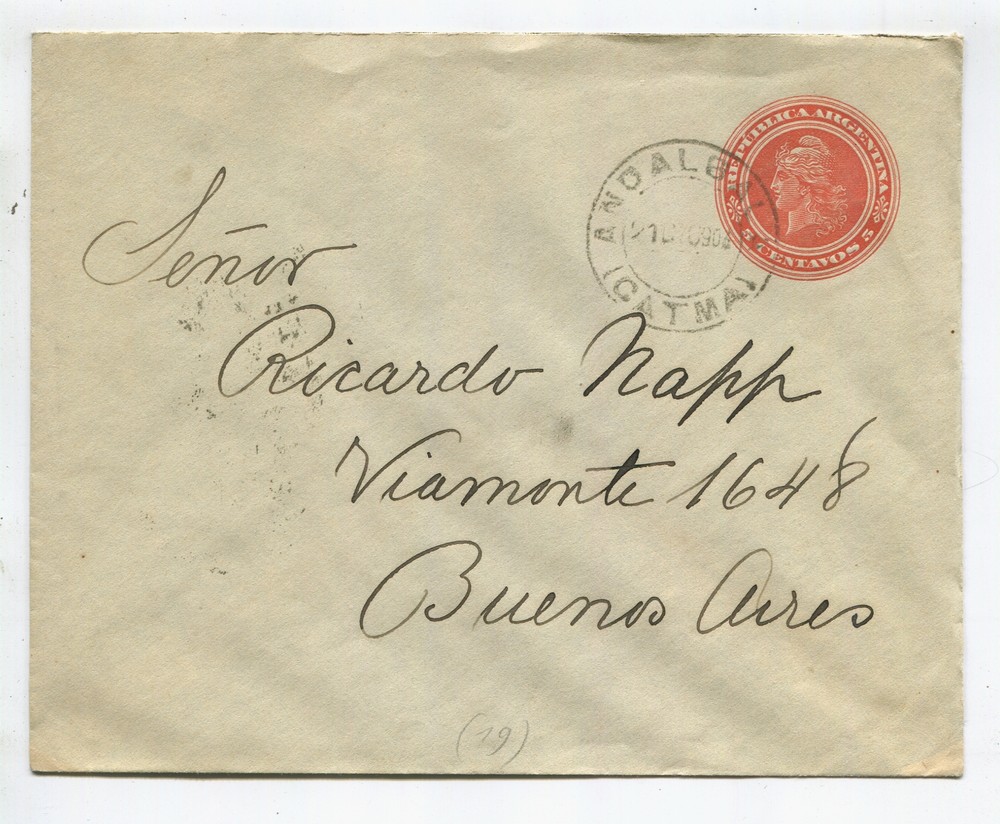 REPÚBLICA ARGENTINA
5 CENTAVOS 5
(CATMA)
Señor
Ricardo Napp
Viamonte 1648
Buenos Aires
(19)